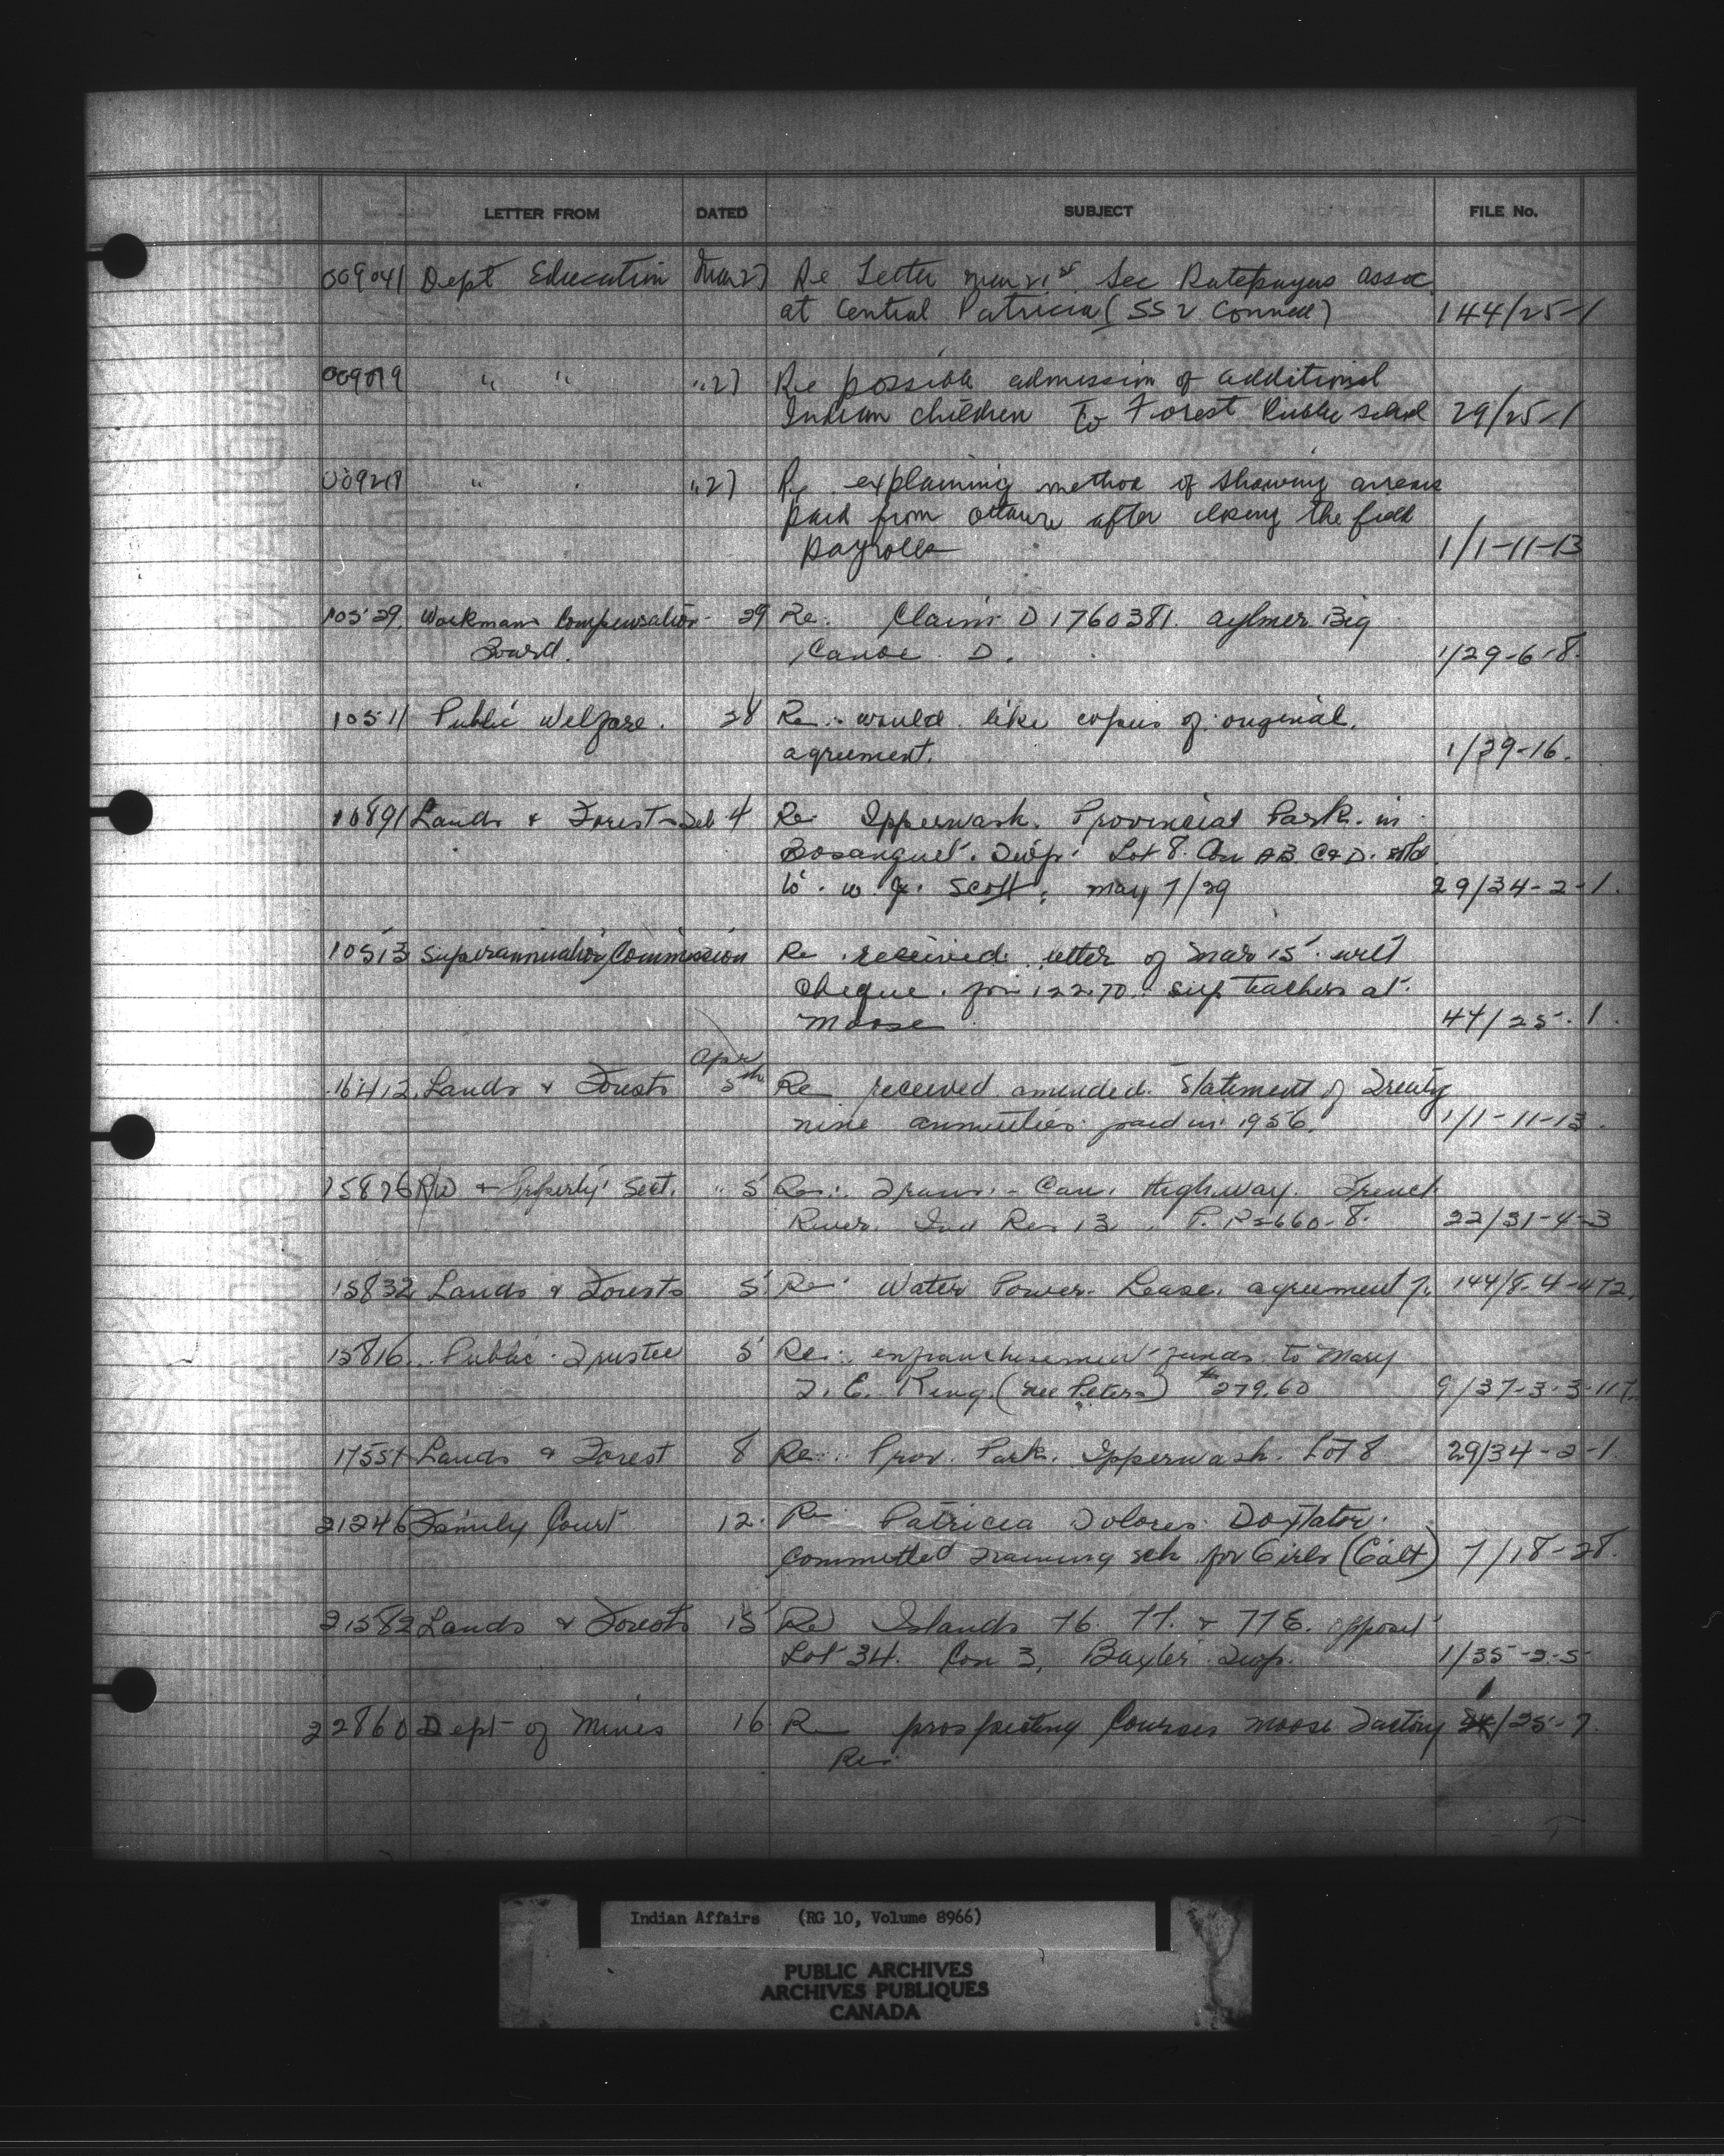 LETTER FROM DATED SUBJECT FILE No.
009041 Dept Education Mar 27 Re Letter Mar 21st Sec Ratepayers assoc.
at Central Patricia (SS 2 Connell) 144/25-1
009019 " " " 27 Re possible admission of additional
Indian children to Forest Public school 29/25-1
009218 " " " 27 Re explaining method of showing arrears
paid from after closing the field
payrolls 1/1-11-13
10529. Workmans Compensation 29 Re. Claim D 1760381. Aylmer Big
Board. Canoe D. 1/29-6-8.
10511 Public Welfare. 28 Re. would like copies of original.
agreement. 1/29-16.
10891 Lands & Forests Feb 4 Re Ipperwash. Provincial Park. in
Bosanquet. Twp. Lot 8. Con A B. C & D. sold
to. W. J. Scott, May 7/29 29/34-2-1.
10513 Superannuation Commission Re received letter of Mar 15 with
cheque. for 122.70. sup. teachers at.
Moose 44/25-1.
Apr
16412. Lands & Forests 5th Re received amended. Statement of Treaty
nine annuities paid in 1956. 1/1-11-13.
15876 R/W & Property Sect. " 5 Re: Trans.- Can. Highway. French
River. Ind Res 13 P. 2660-8. 22/31-4-3
15832 Lands & Forests 5 Re. Water Power. Lease. agreement 7. 144/8-4-472.
15816. Public Trustee 5 Re: enfranchisement funds to Mary
T. E. King. (nee Peters) $279.60 9/37-3-3-117.
17551 Lands & Forest 8 Re: Prov. Park. Ipperwash. Lot 8 29/34-2-1.
21246 Family Court 12. Re Patricia Dolores Doxtator.
Committed Training sch for Girls (Galt) 7/18-28.
21582 Lands & Forests 15 Re Islands 76. 77. & 77E. opposit
Lot 34. Con 3, Baxter Twp. 1/35-2-5
22860 Dept of Mines 16 Re prospecting Courses Moose Factory 1/25-7.
Re.
Indian Affairs (RG 10, Volume 8966)
PUBLIC ARCHIVES
ARCHIVES PUBLIQUES
CANADA